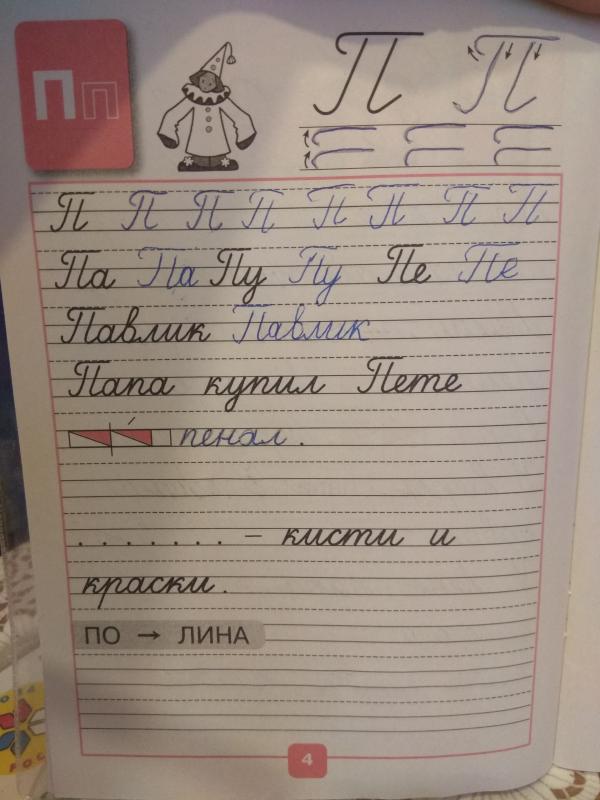 Пп
П П
П П П П П П П П
Па Па Пу Пу Пе Пе
Павлик Павлик
Папа купил Пете
пенал.
. . . . . . . – кисти и
краски.
ПО → ЛИНА
4